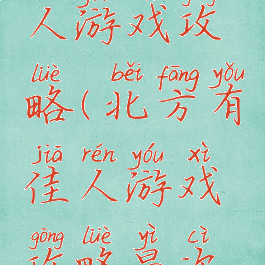 人游戏攻
lüè běi fāng yǒu
略(北方有
jiā rén yóu xì
佳人游戏
gōng lüè yì cì
攻略